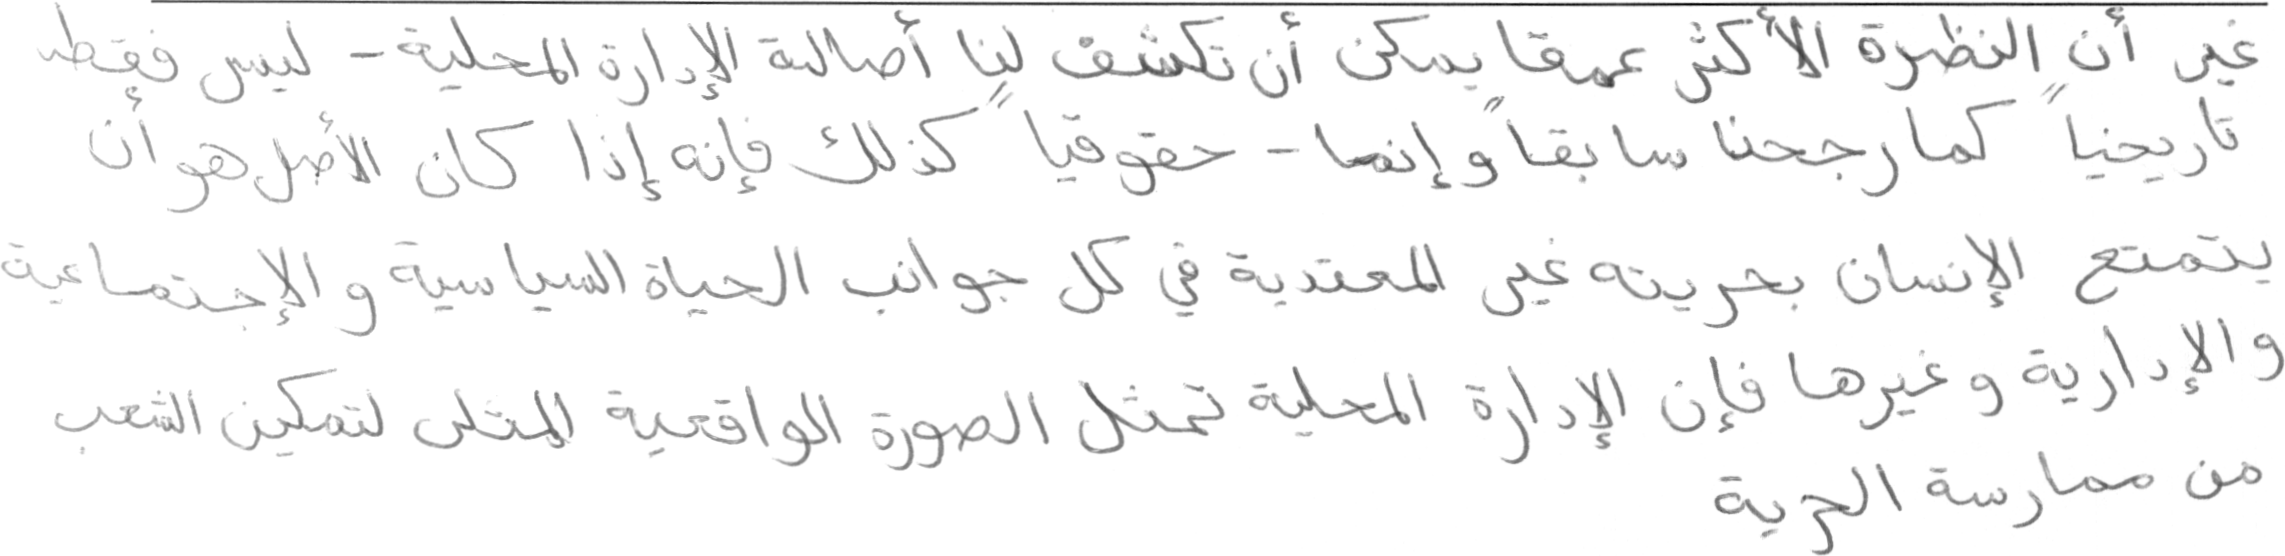 غير أن النظرة الأكثر عمقا يمكن أن تكشف لنا أصالة الإدارة المحلية - ليس فقط
تاريخياً كما رجحنا سابقاً وإنما - حقوقياً كذلك فإنه إذا كان الأصل هو أن
يتمتع الإنسان بحريته غير المعتدية في كل جوانب الحياة السياسية والإجتماعية
والإدارية وغيرها فإن الإدارة المحلية تمثل الصورة الواقعية المثلى لتمكين الشعب
من ممارسة الحرية